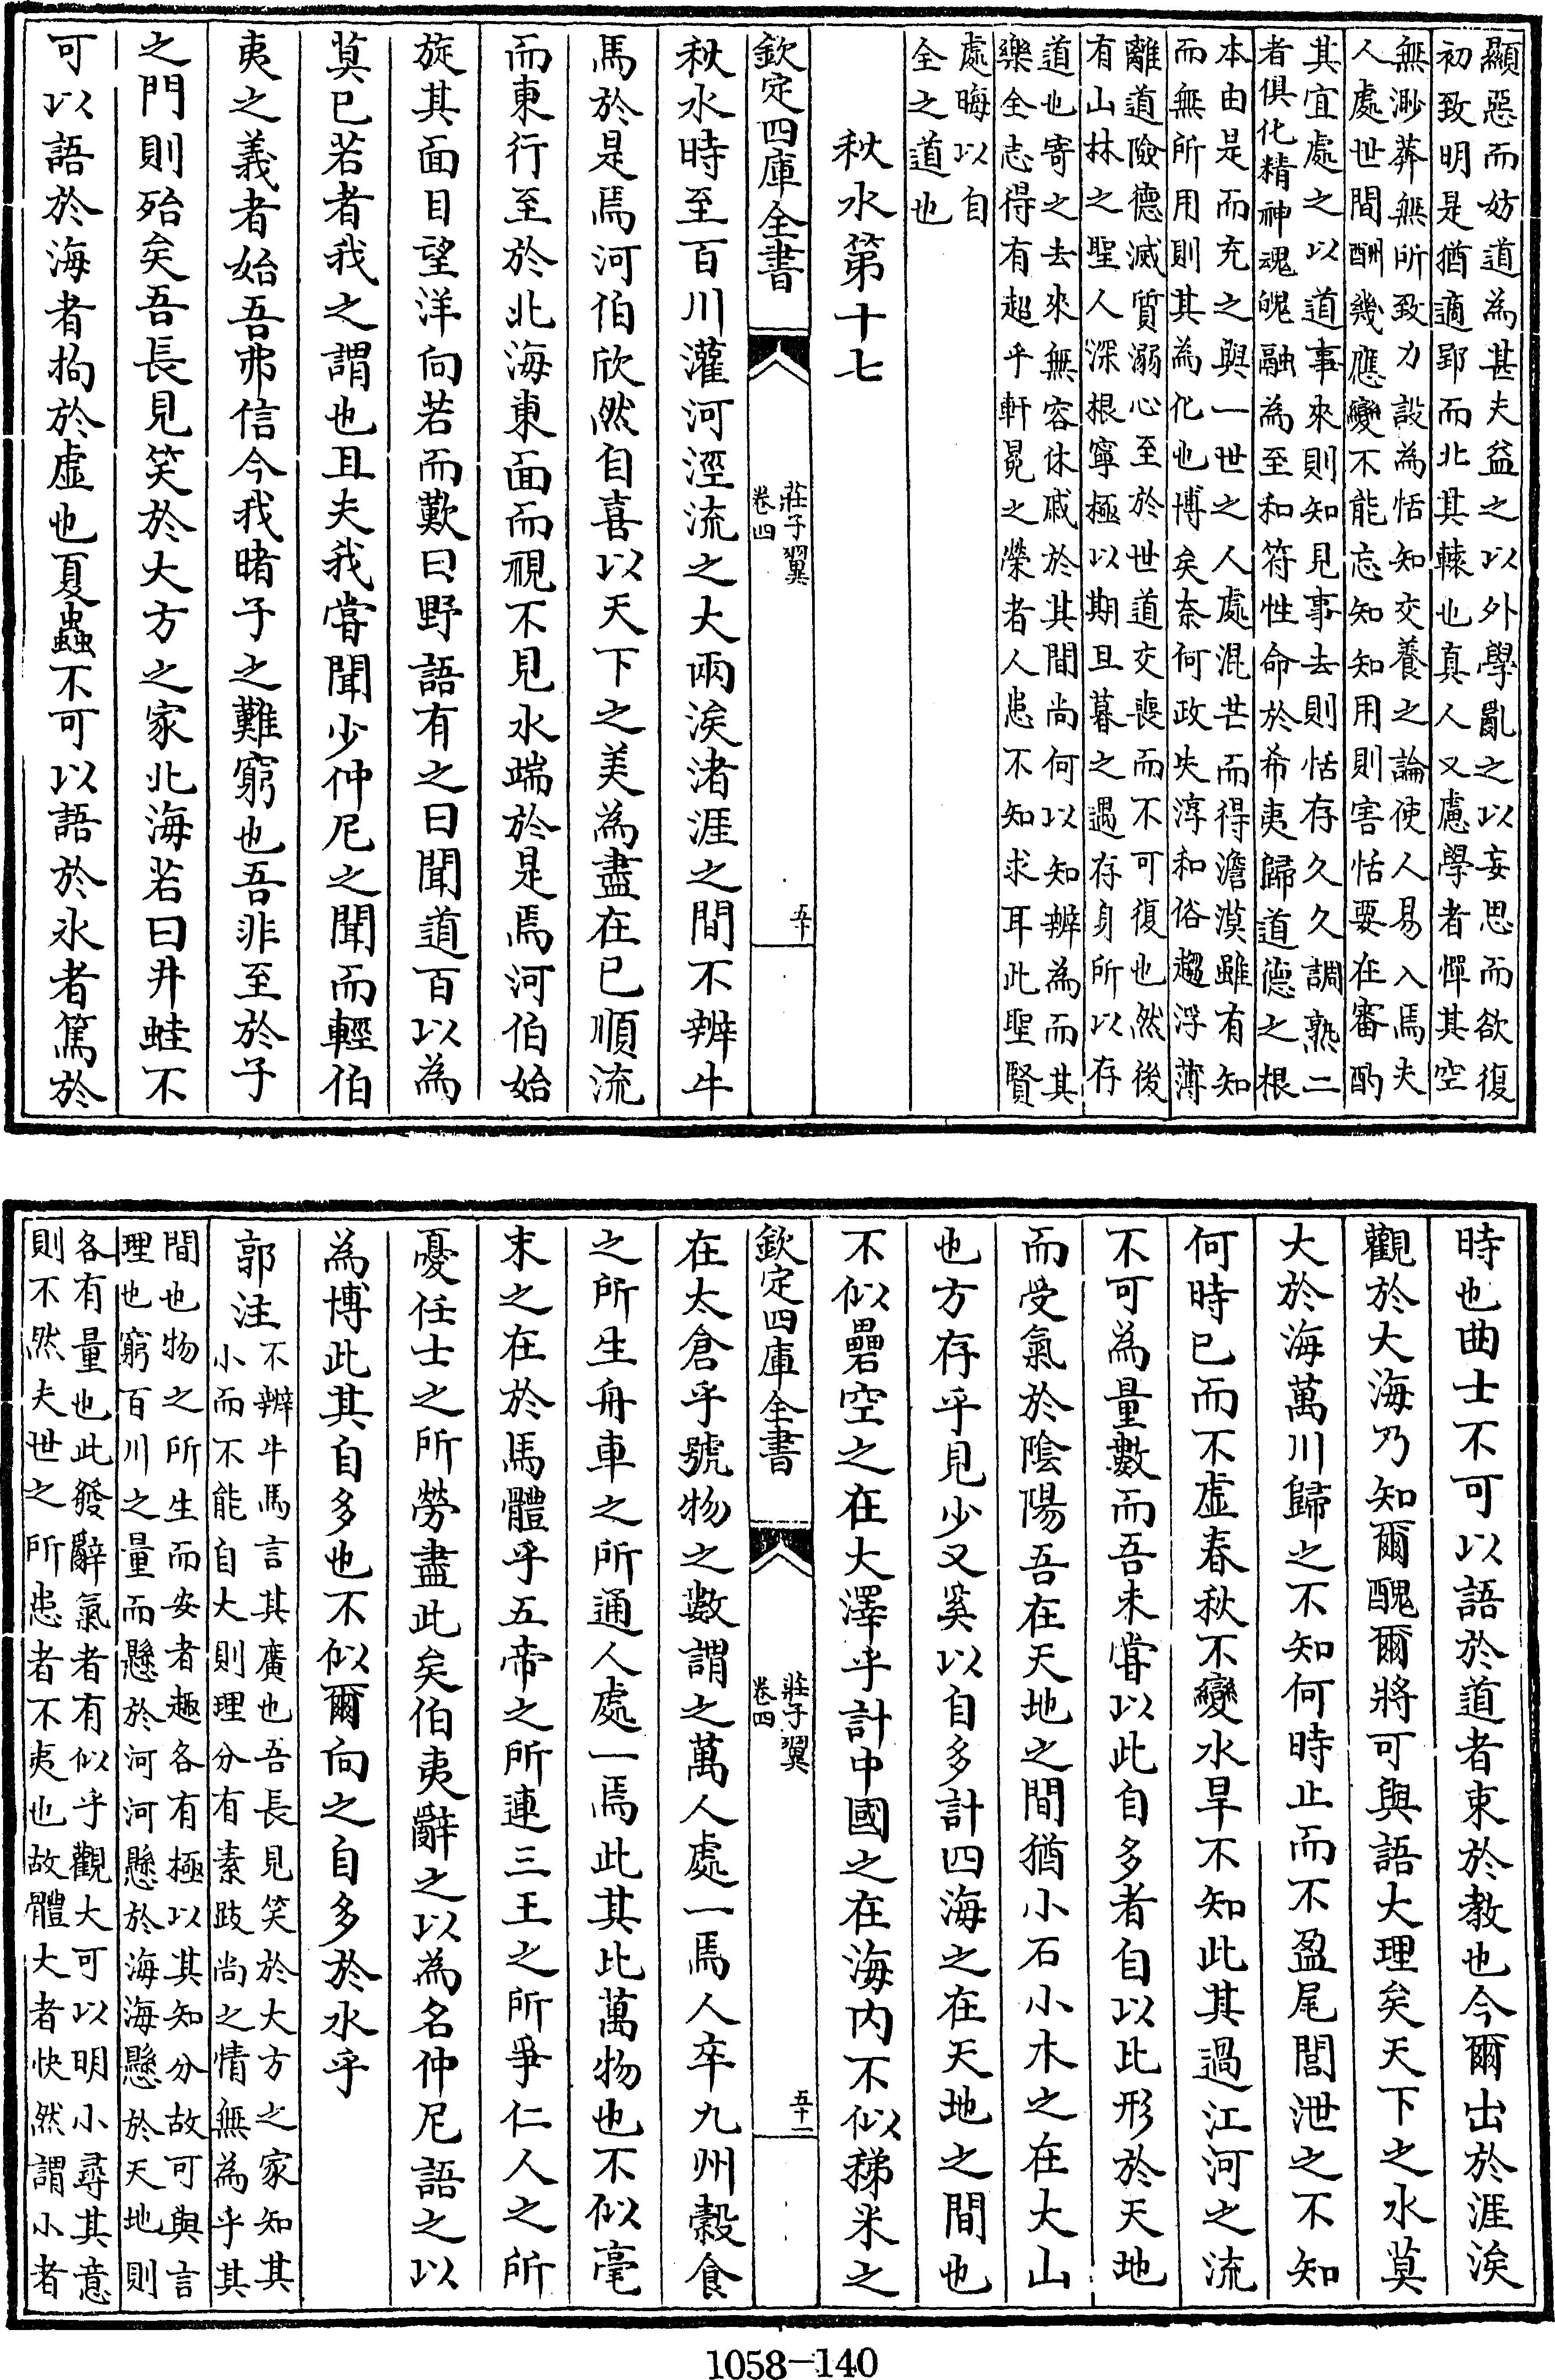 顯惡而妨道為甚夫益之以外學亂之以妄思而欲復
初致明是猶適郢而北其轅也真人又慮學者憚其空
無渺莽無所致力設為恬知交養之論使人易入焉夫
人處世間酬幾應變不能忘知知用則害恬要在審酌
其宜處之以道事來則知見事去則恬存久久調熟二
者俱化精神魂魄融為至和符性命於希夷歸道德之根
本由是而充之與一世之人處混芒而得澹漠雖有知
而無所用則其為化也博矣奈何政失淳和俗趨浮薄
離道險德滅質溺心至於世道交喪而不可復也然後
有山林之聖人深根寧極以期旦暮之遇存身所以存
道也寄之去來無容休戚於其間尚何以知辨為而其
樂全志得有超乎軒冕之榮者人患不知求耳此聖賢
處晦以自
全之道也
秋水第十七
欽定四庫全書
莊子翼
卷四
五十
秋水時至百川灌河涇流之大兩涘渚涯之間不辨牛
馬於是焉河伯欣然自喜以天下之美為盡在已順流
而東行至於北海東面而視不見水端於是焉河伯始
旋其面目望洋向若而歎曰野語有之曰聞道百以為
莫已若者我之謂也且夫我嘗聞少仲尼之聞而輕伯
夷之義者始吾弗信今我睹子之難窮也吾非至於子
之門則殆矣吾長見笑於大方之家北海若曰井蛙不
可以語於海者拘於虛也夏蟲不可以語於氷者篤於
時也曲士不可以語於道者束於教也今爾出於涯涘
觀於大海乃知爾醜爾將可與語大理矣天下之水莫
大於海萬川歸之不知何時止而不盈尾閭泄之不知
何時已而不虛春秋不變水旱不知此其過江河之流
不可為量數而吾未嘗以此自多者自以比形於天地
而受氣於陰陽吾在天地之間猶小石小木之在大山
也方存乎見少又奚以自多計四海之在天地之間也
不似礨空之在大澤乎計中國之在海內不似稊米之
欽定四庫全書
莊子翼
卷四
五十一
在太倉乎號物之數謂之萬人處一焉人卒九州穀食
之所生舟車之所通人處一焉此其比萬物也不似毫
末之在於馬體乎五帝之所連三王之所爭仁人之所
憂任士之所勞盡此矣伯夷辭之以為名仲尼語之以
為博此其自多也不似爾向之自多於水乎
郭注
不辨牛馬言其廣也吾長見笑於大方之家知其
小而不能自大則理分有素跂尚之情無為乎其
間也物之所生而安者趣各有極以其知分故可與言
理也窮百川之量而懸於河河懸於海海懸於天地則
各有量也此發辭氣者有似乎觀大可以明小尋其意
則不然夫世之所患者不夷也故體大者快然謂小者
1058-140